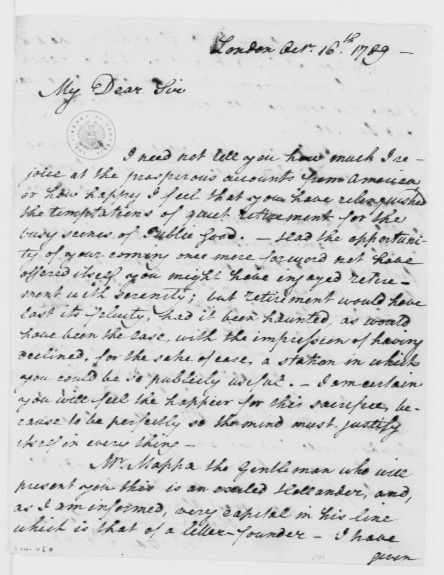 London Octr. 16th. 1789 —
My Dear Sir
I need not tell you how much I re-
joice at the prosperous accounts from America
or how happy I feel that you have relinquished
the temptations of quiet retirement for the
busy scenes of Public Good. — Had the opportuni-
ty of your coming once more forword not have
offered itself you might have enjoyed retire-
ment with serenity; but retirement would have
lost its felicity, had it been haunted, as would
have been the case, with the impression of having
declined, for the sake of ease, a station in which
you could be so publicly useful. — I am certain
you will feel the happier for this sacrifice, be-
cause to be perfectly so the mind must justify
itself in every thing —
Mr. Mappa the Gentleman who will
present you this is an exiled Hollander, and,
as I am informed, very capital in his line
which is that of a letter-founder — I have
given